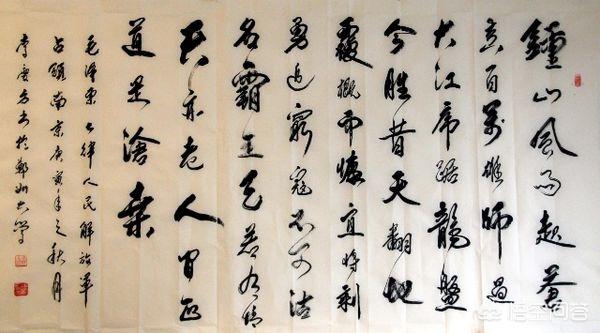 鍾山風雨起蒼
黄百萬雄師過
大江虎踞龍盤
今勝昔天翻地
覆慨而慷宜將剩
勇追窮寇不可沽
名霸王天若有情
天亦老人間正
道是滄桑
毛澤東七律人民解放軍
占領南京庚寅年之秋月
於鄭州
悟空问答